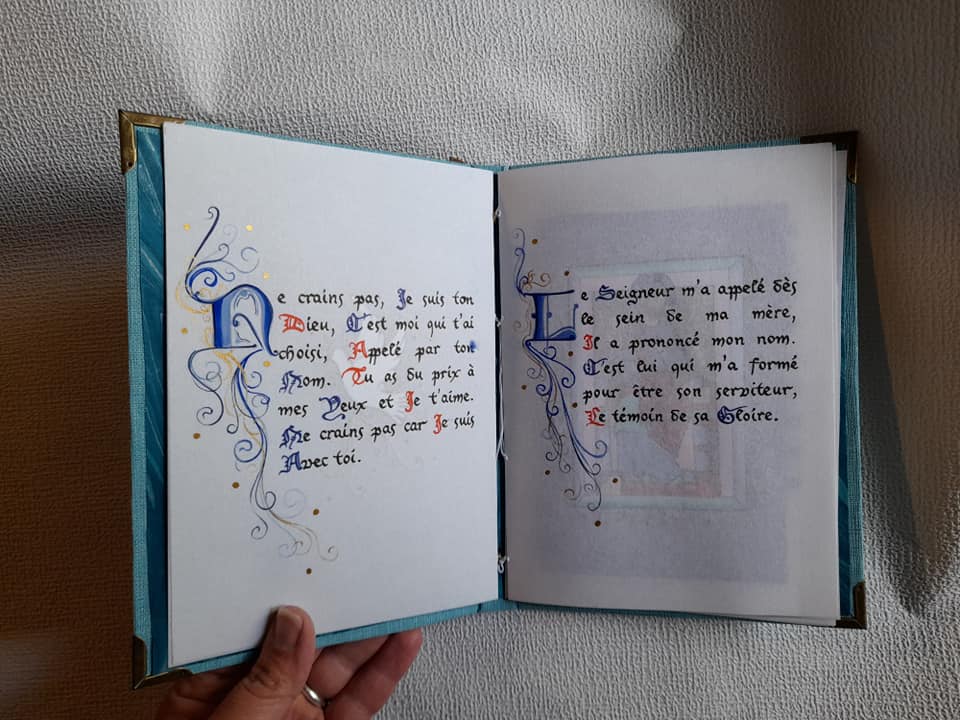 Ne crains pas, Je suis ton
Dieu, C'est moi qui t'ai
choisi, Appelé par ton
Nom. Tu as du prix à
mes Yeux et Je t'aime.
Ne crains pas car Je suis
Avec toi.
Le Seigneur m'a appelé dès
le sein de ma mère,
Il a prononcé mon nom.
C'est lui qui m'a formé
pour être son serviteur,
Le témoin de sa Gloire.